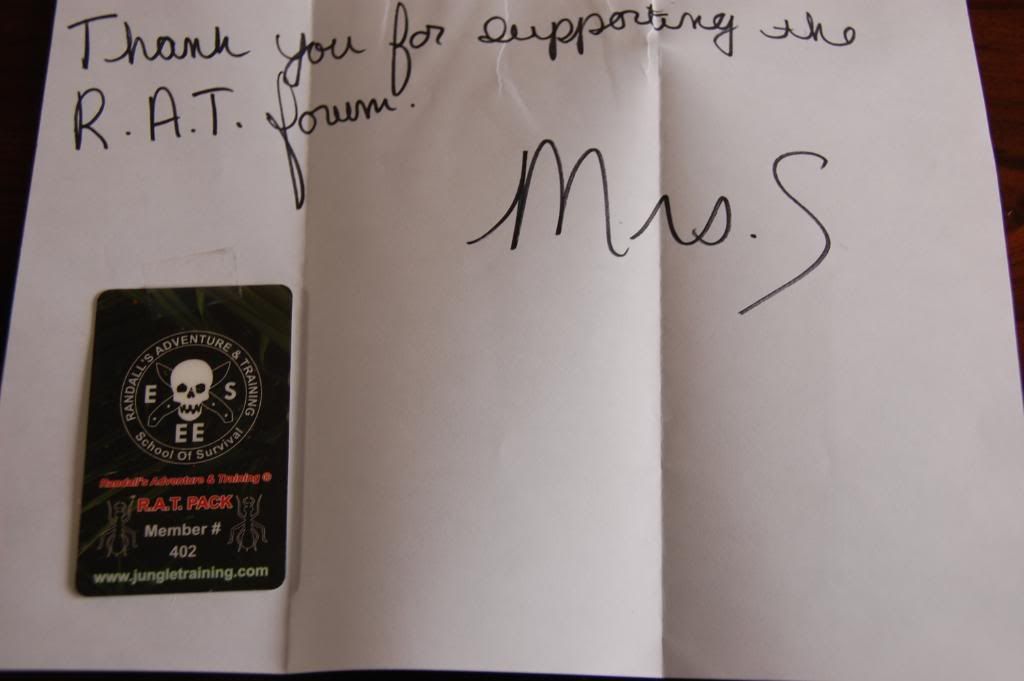 Thank you for supporting the
R.A.T. forum.
Mrs. S
RANDALL'S ADVENTURE & TRAINING
E S
EE
School Of Survival
Randall's Adventure & Training ®
R.A.T. PACK
Member #
402
www.jungletraining.com